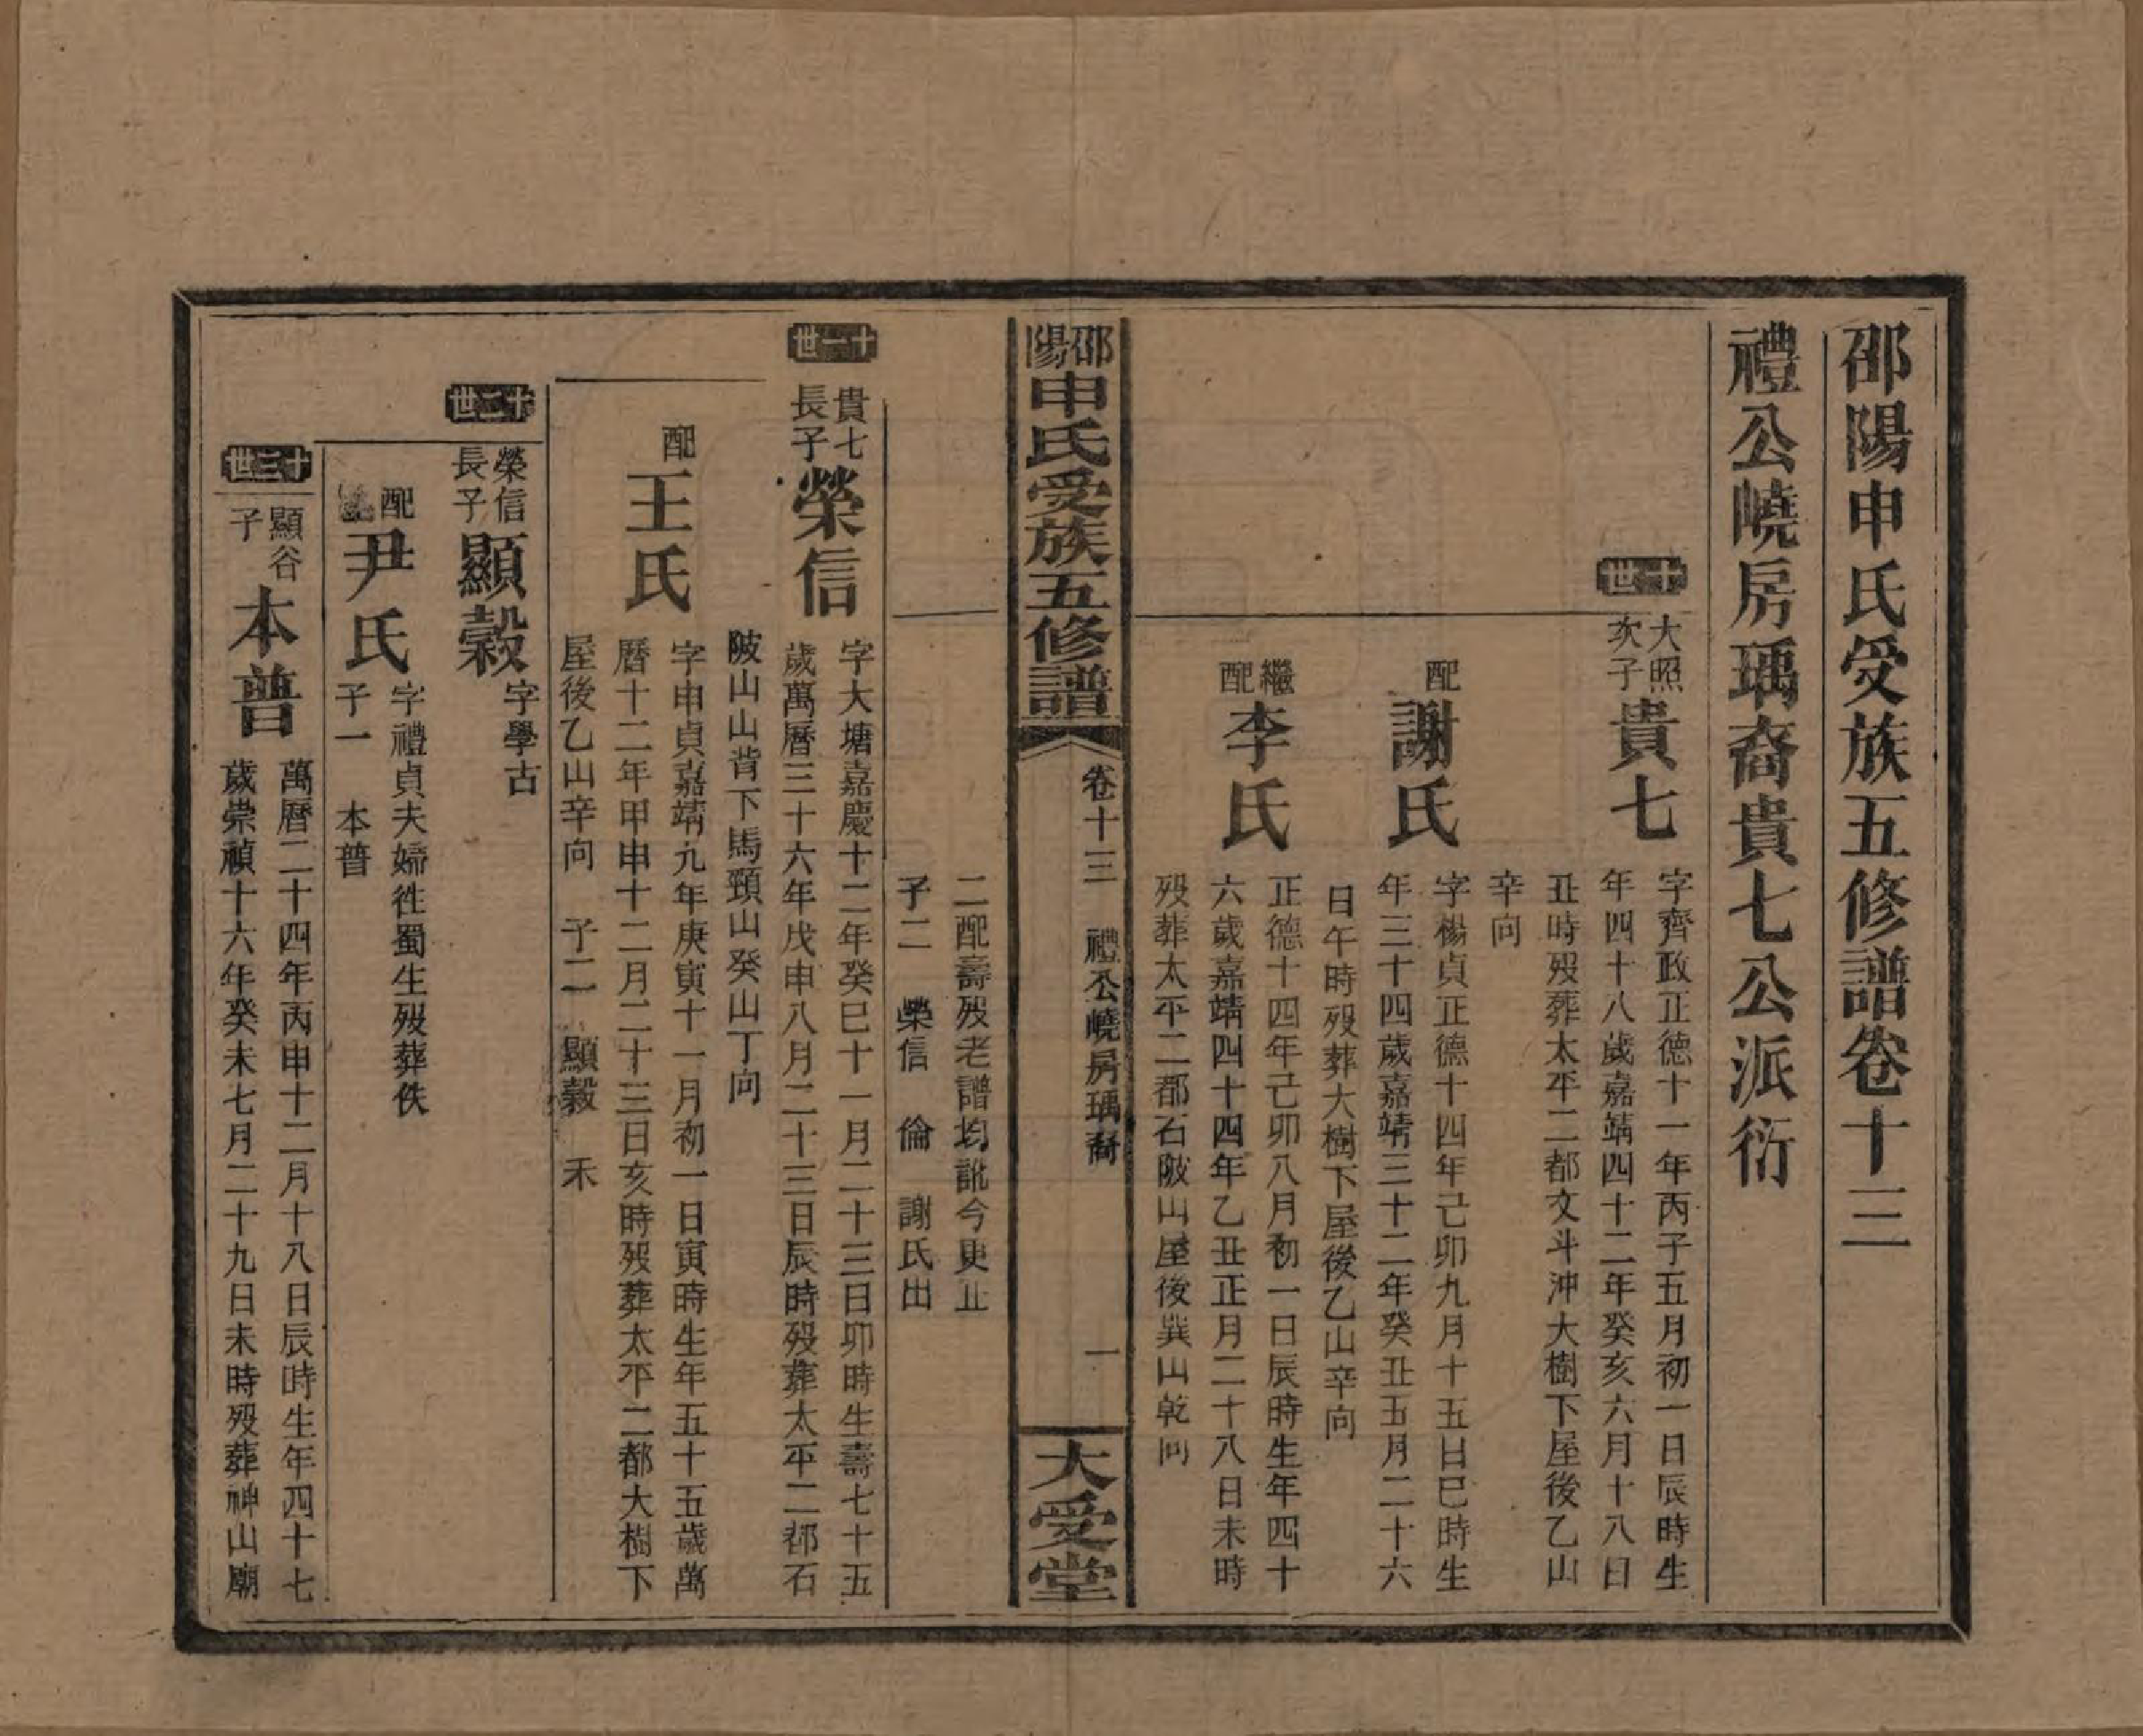 邵陽申氏受族五修譜卷十三
禮公嶢房瑀裔貴七公派衍
十世
大照次子
貴七
字齊政正德十一年丙子五月初一日辰時生
年四十八歲嘉靖四十二年癸亥六月十八日
丑時歿葬太平二都文斗沖大樹下屋後乙山
辛向
配
謝氏
字楊貞正德十四年己卯九月十五日巳時生
年三十四歲嘉靖三十二年癸丑五月二十六
日午時歿葬大樹下屋後乙山辛向
繼配
李氏
正德十四年己卯八月初一日辰時生年四十
六歲嘉靖四十四年乙丑正月二十八日未時
歿葬太平二都石陂山屋後巽山乾向
邵陽申氏受族五修譜
卷十三 禮公嶢房瑀裔 一
大受堂
二配壽歿老譜均訛今更正
子二 榮信 倫 謝氏出
十一世
貴七長子
榮信
字大塘嘉慶十二年癸巳十一月二十三日卯時生壽七十五
歲萬曆三十六年戊申八月二十三日辰時歿葬太平二都石
陂山山背下馬頸山癸山丁向
配
王氏
字申貞嘉靖九年庚寅十一月初一日寅時生年五十五歲萬
曆十二年甲申十二月二十三日亥時歿葬太平二都大樹下
屋後乙山辛向 子二 顯穀 禾
十二世
榮信長子
顯穀
字學古
配
尹氏
字禮貞夫婦徃蜀生歿葬佚
子一 本普
十三世
顯谷子
本普
萬曆二十四年丙申十二月十八日辰時生年四十七
歲崇禎十六年癸未七月二十九日未時歿葬神山廟